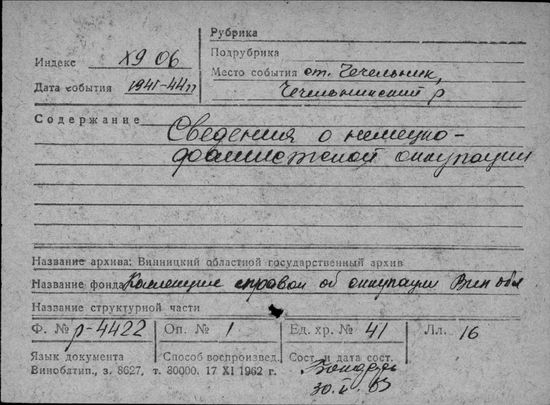 Рубрика
Индекс X9 06
Подрубрика
Место события ст. Чечельник,
Дата события 1941-44гг
Чечельницкий р
Содержание
Сведения о немецко-
фашистской оккупации
Название архива: Винницкий областной государственный архив
Название фонда Коллекция справок об оккупации Вин обл
Название структурной части
Ф. № р-4422 Оп. № 1 Ед. хр. № 41 Лл. 16
Язык документа Способ воспроизвед. Сост. и дата сост.
Винобатип., з. 8627, т. 30000. 17 XI 1962 г.